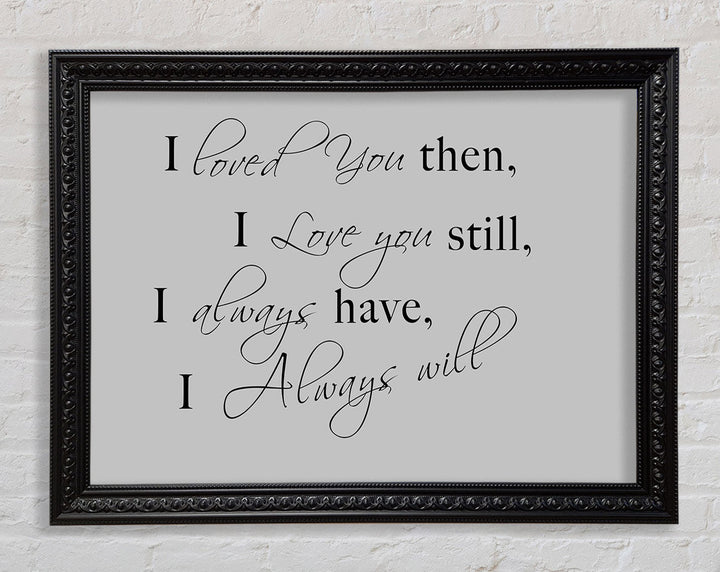 I loved You then,
I Love you still,
I always have,
I Always will